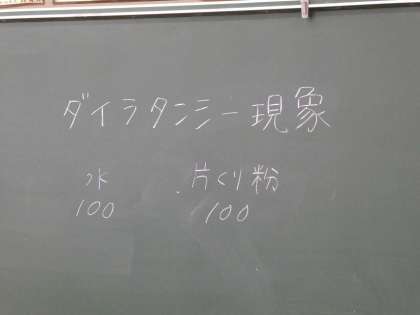 ダイラタンシー現象
水 片くり粉
100 100